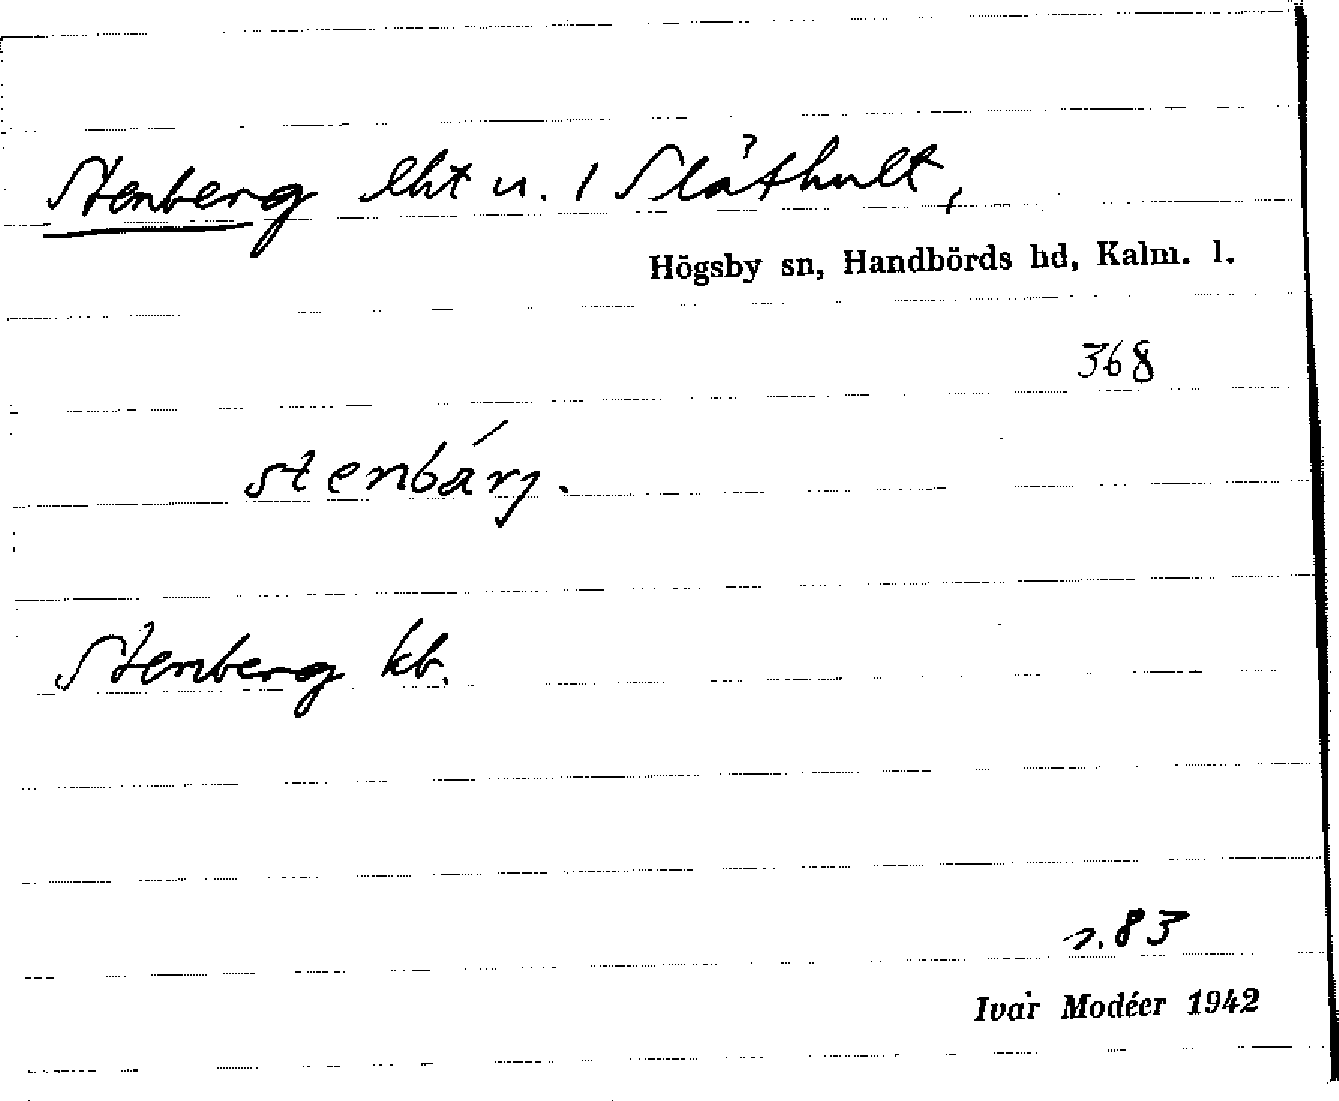 Stenberg lht u. 1 Slåthult,
Högsby sn, Handbörds hd, Kalm. l.
368
stenbárj.
Stenberg kb.
s. 83
Ivar Modéer 1942